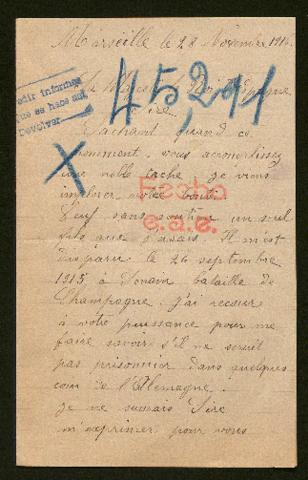 Marseille le 28 Novembre 191
Sa Majesté le Roi d'Espagne
Sire
Pedir informes
que se hace aut
Devolver
45,241
X
Sachant quand ce
moment, vous accomplissez
une noble tache je viens
implorer votre bonté
Veuf sans soutien un seul
fils que j'avais Il m'est
Fecho
e.a.e.
disparu le 26 septembre
1915 à Souain bataille de
Champagne. j'ai recour
à votre puissance pour me
faire savoir s'il ne serait
pas prisonnier dans quelques
coin de l'Allemagne.
Je ne saurais Sire
m'exprimer pour vous